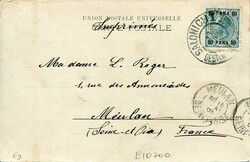 UNION POSTALE UNIVERSELLE
Imprimés
10 PARA 10
SALONICH
MEULAN
Madame L. Roger
1 rue des Annonciades
Meulan
(Seine et Oise)
France
69
E10700